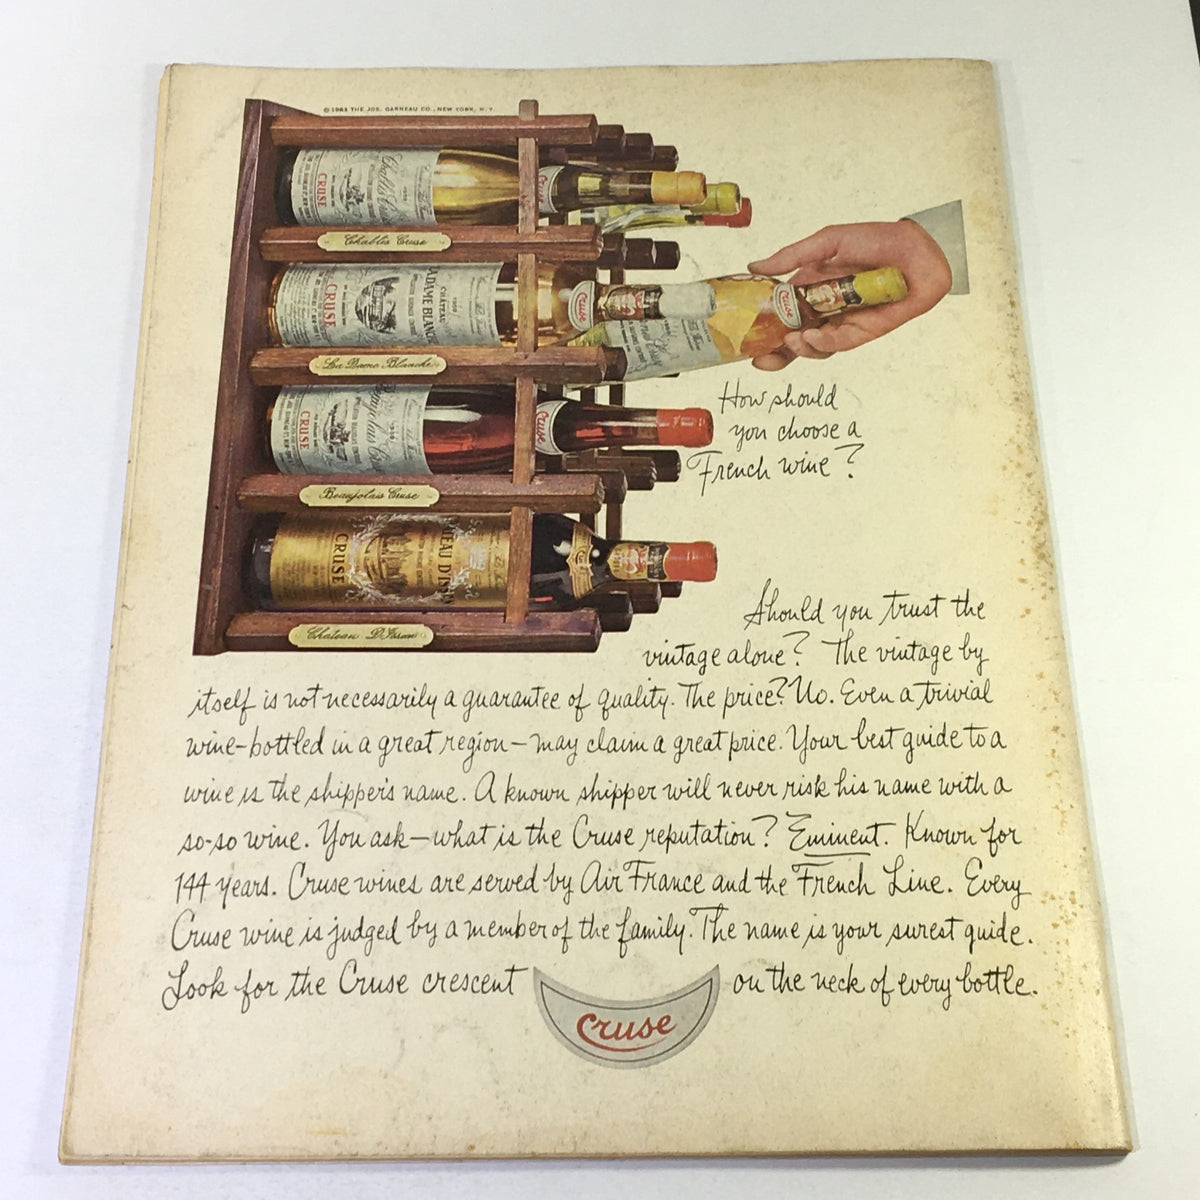 © 1963 THE JOS. GARNEAU CO., NEW YORK, N.Y.
Chablis Cruse
CRUSE
Cruse
Chablis Cruse
CHÂTEAU
DAME BLANCHE
CRUSE
Cruse
Cruse
La Dame Blanche
Beaujolais Cruse
CRUSE
Cruse
Beaujolais Cruse
CRUSE
Chateau D'Issan
How should
you choose a
French wine?
Should you trust the
vintage alone? The vintage by
itself is not necessarily a guarantee of quality. The price? No. Even a trivial
wine-bottled in a great region-may claim a great price. Your best guide to a
wine is the shipper's name. A known shipper will never risk his name with a
so-so wine. You ask-what is the Cruse reputation? Eminent. Known for
144 years. Cruse wines are served by Air France and the French Line. Every
Cruse wine is judged by a member of the family. The name is your surest guide.
Look for the Cruse crescent on the neck of every bottle.
Cruse